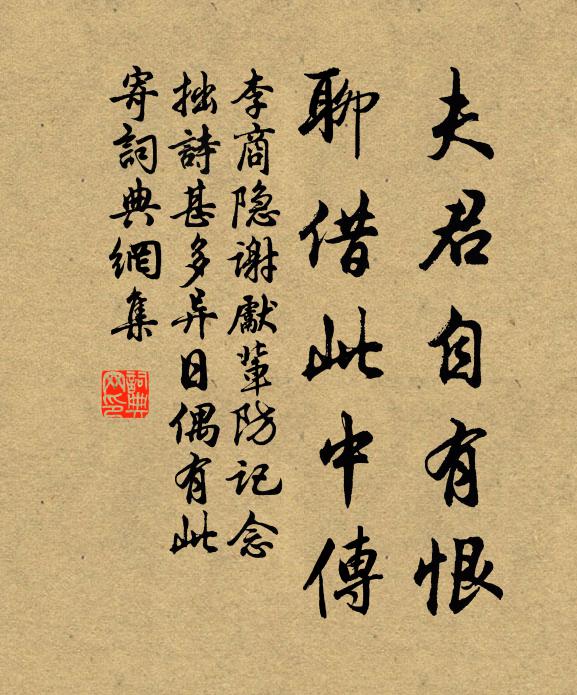 夫君自有恨
聊借此中傳
李商隐謝獻輩防記念
拙詩甚多异日偶有此
寄詞典網集
詞典
网印